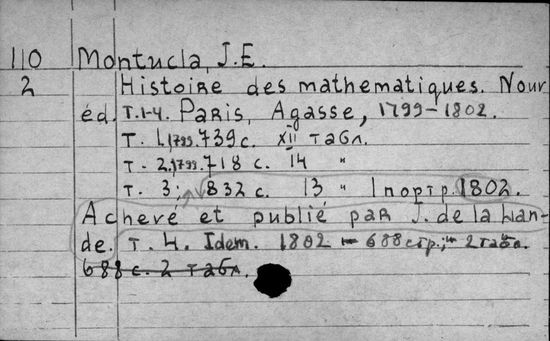 110 Montucla, J.E.
2 Histoire des mathematiques. Nouv
éd. T.1-4. Paris, Agasse, 1799-1802.
T. 1, 1799. 739 c. XII табл.
T. 2, 1799. 718 c. 14 "
T. 3; 832 c. 13 " 1 портр. 1802.
Achevé et publié par J. de la Lan-
de. T. 4. Idem. 1802 - 688 стр; - 2 табл.
688 c. 2 табл.